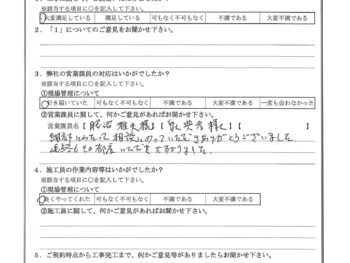 ※該当する項目に○を記入して下さい。
大変満足している 満足している 可もなく不可もなく 不満である 大変不満である
2. 「1」についてのご意見をお聞かせ下さい。
3. 弊社の営業課員の対応はいかがでしたか？
※該当する項目に○を記入して下さい。
①現場管理について
行き届いていた 可もなく不可もなく 不満である 大変不満である 一度も合わなかった
②営業課員に関して、何かご意見があればお聞かせ下さい。
営業課員名【 様】【 様】【 】
相談にのっていただきありがとうございました
4. 施工員の作業内容等はいかがでしたか？
※該当する項目に○を記入して下さい。
①現場管理について
良くやってくれた 可もなく不可もなく 不満である 大変不満である
②施工員に関して、何かご意見があればお聞かせ下さい。
5. ご契約時点から工事完工まで、何かご意見等がありましたらお聞かせ下さい。